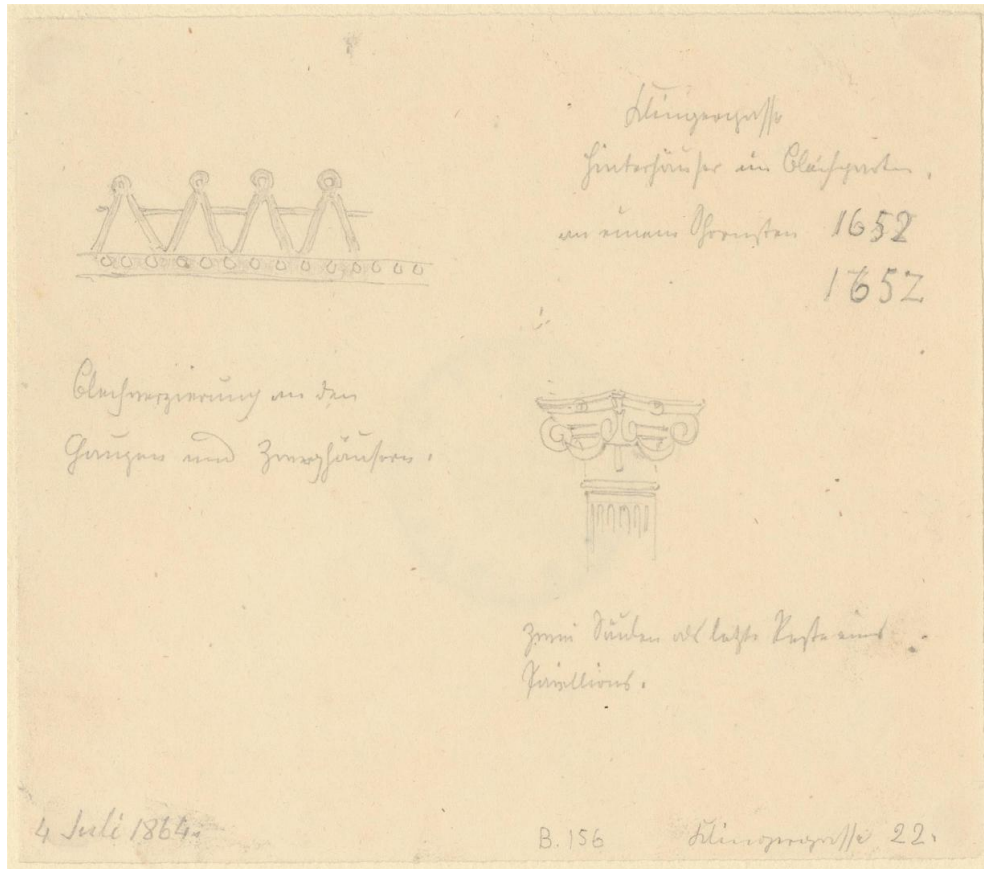 Klingergasse
Hinterhäuser im Bleichgarten.
an einem Schornstein 1652
1652
Blechverzierung an den
Gaupen und Zwerghäusern.
Zwei Säulen als letzte Reste eines
Pavillions.
4 Juli 1864.
B. 156
Klingergasse 22.